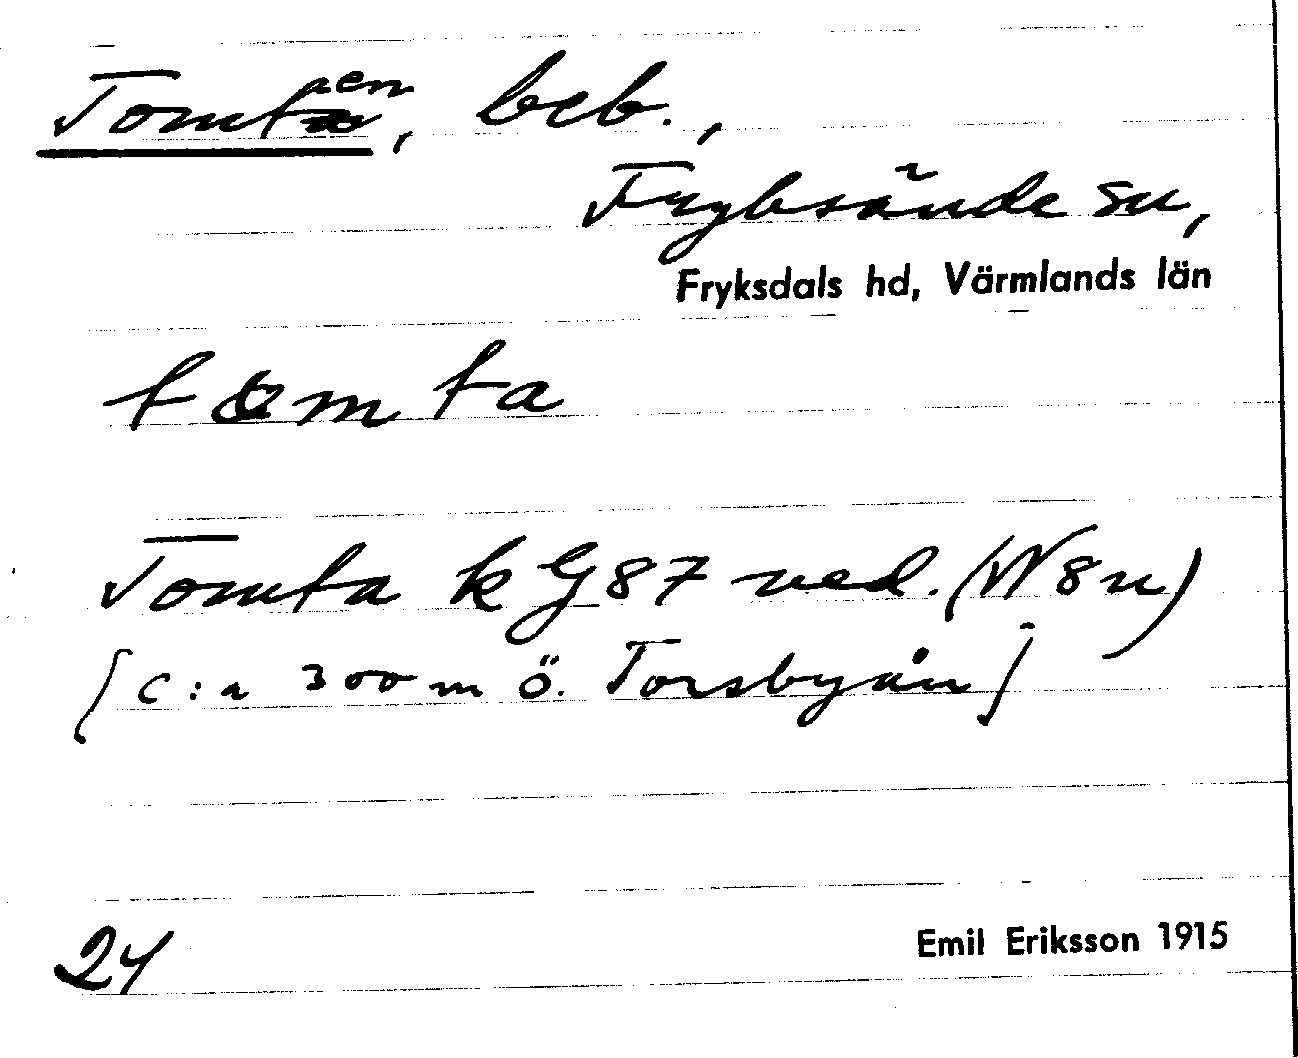 Tomten, beb.,
Fryksände sn,
Fryksdals hd, Värmlands län
tomta
Tomta k G87 ved. (W8n)
[c:a 300 m ö. Torsbyån]
24
Emil Eriksson 1915